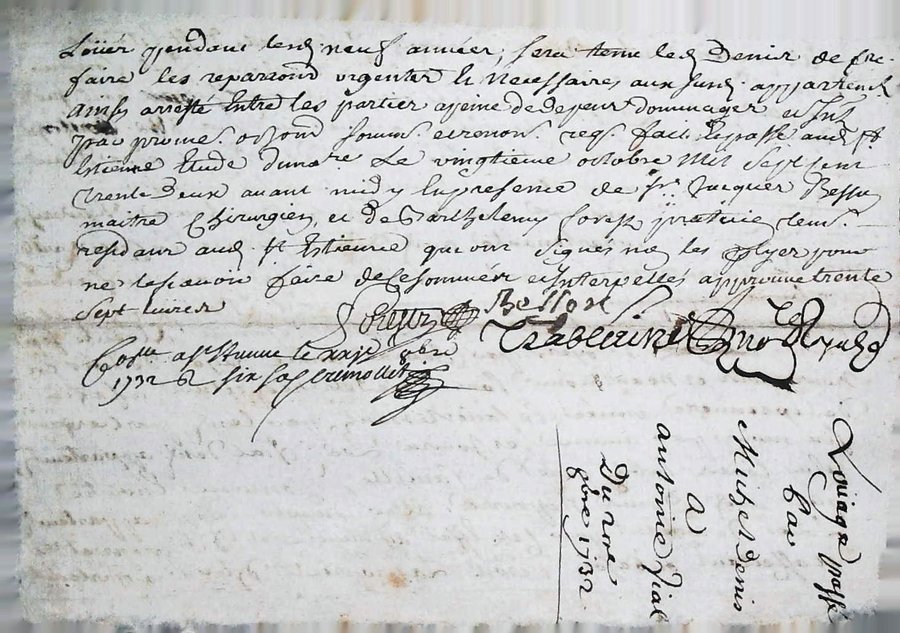 Loüér pendant lesd neuf années, sera tenu led Denis de fre.
faire les reparaõns urgentes et necessaires aux susd. appartenẽ
ainsy arresté Entre les parties apeine de depens dommages et Int
par promes. et
 Estienne Etude du noʳᵉ Le vingtieme octobre Mil Sept cent
trente deux avant midy En presence de Sʳ. Jacques Besson
maitre Chirurgien et de Barthelemy praticien
residans aud. Sᵗ Estienne qui ont signés non les partyes pour
ne le scavoir faire de Ce sommées et Interpellés approuvé trente
sept livres
Besson
Tezablerines noʳᵉ Royal
Coⁿˡˡᵉ a Sᵗ Etienne le xxjᵉ 8bre
1732 six sols
Loüage passé
Par
Michel Denis
a
antoinie vial
Du xx
8bre 1732